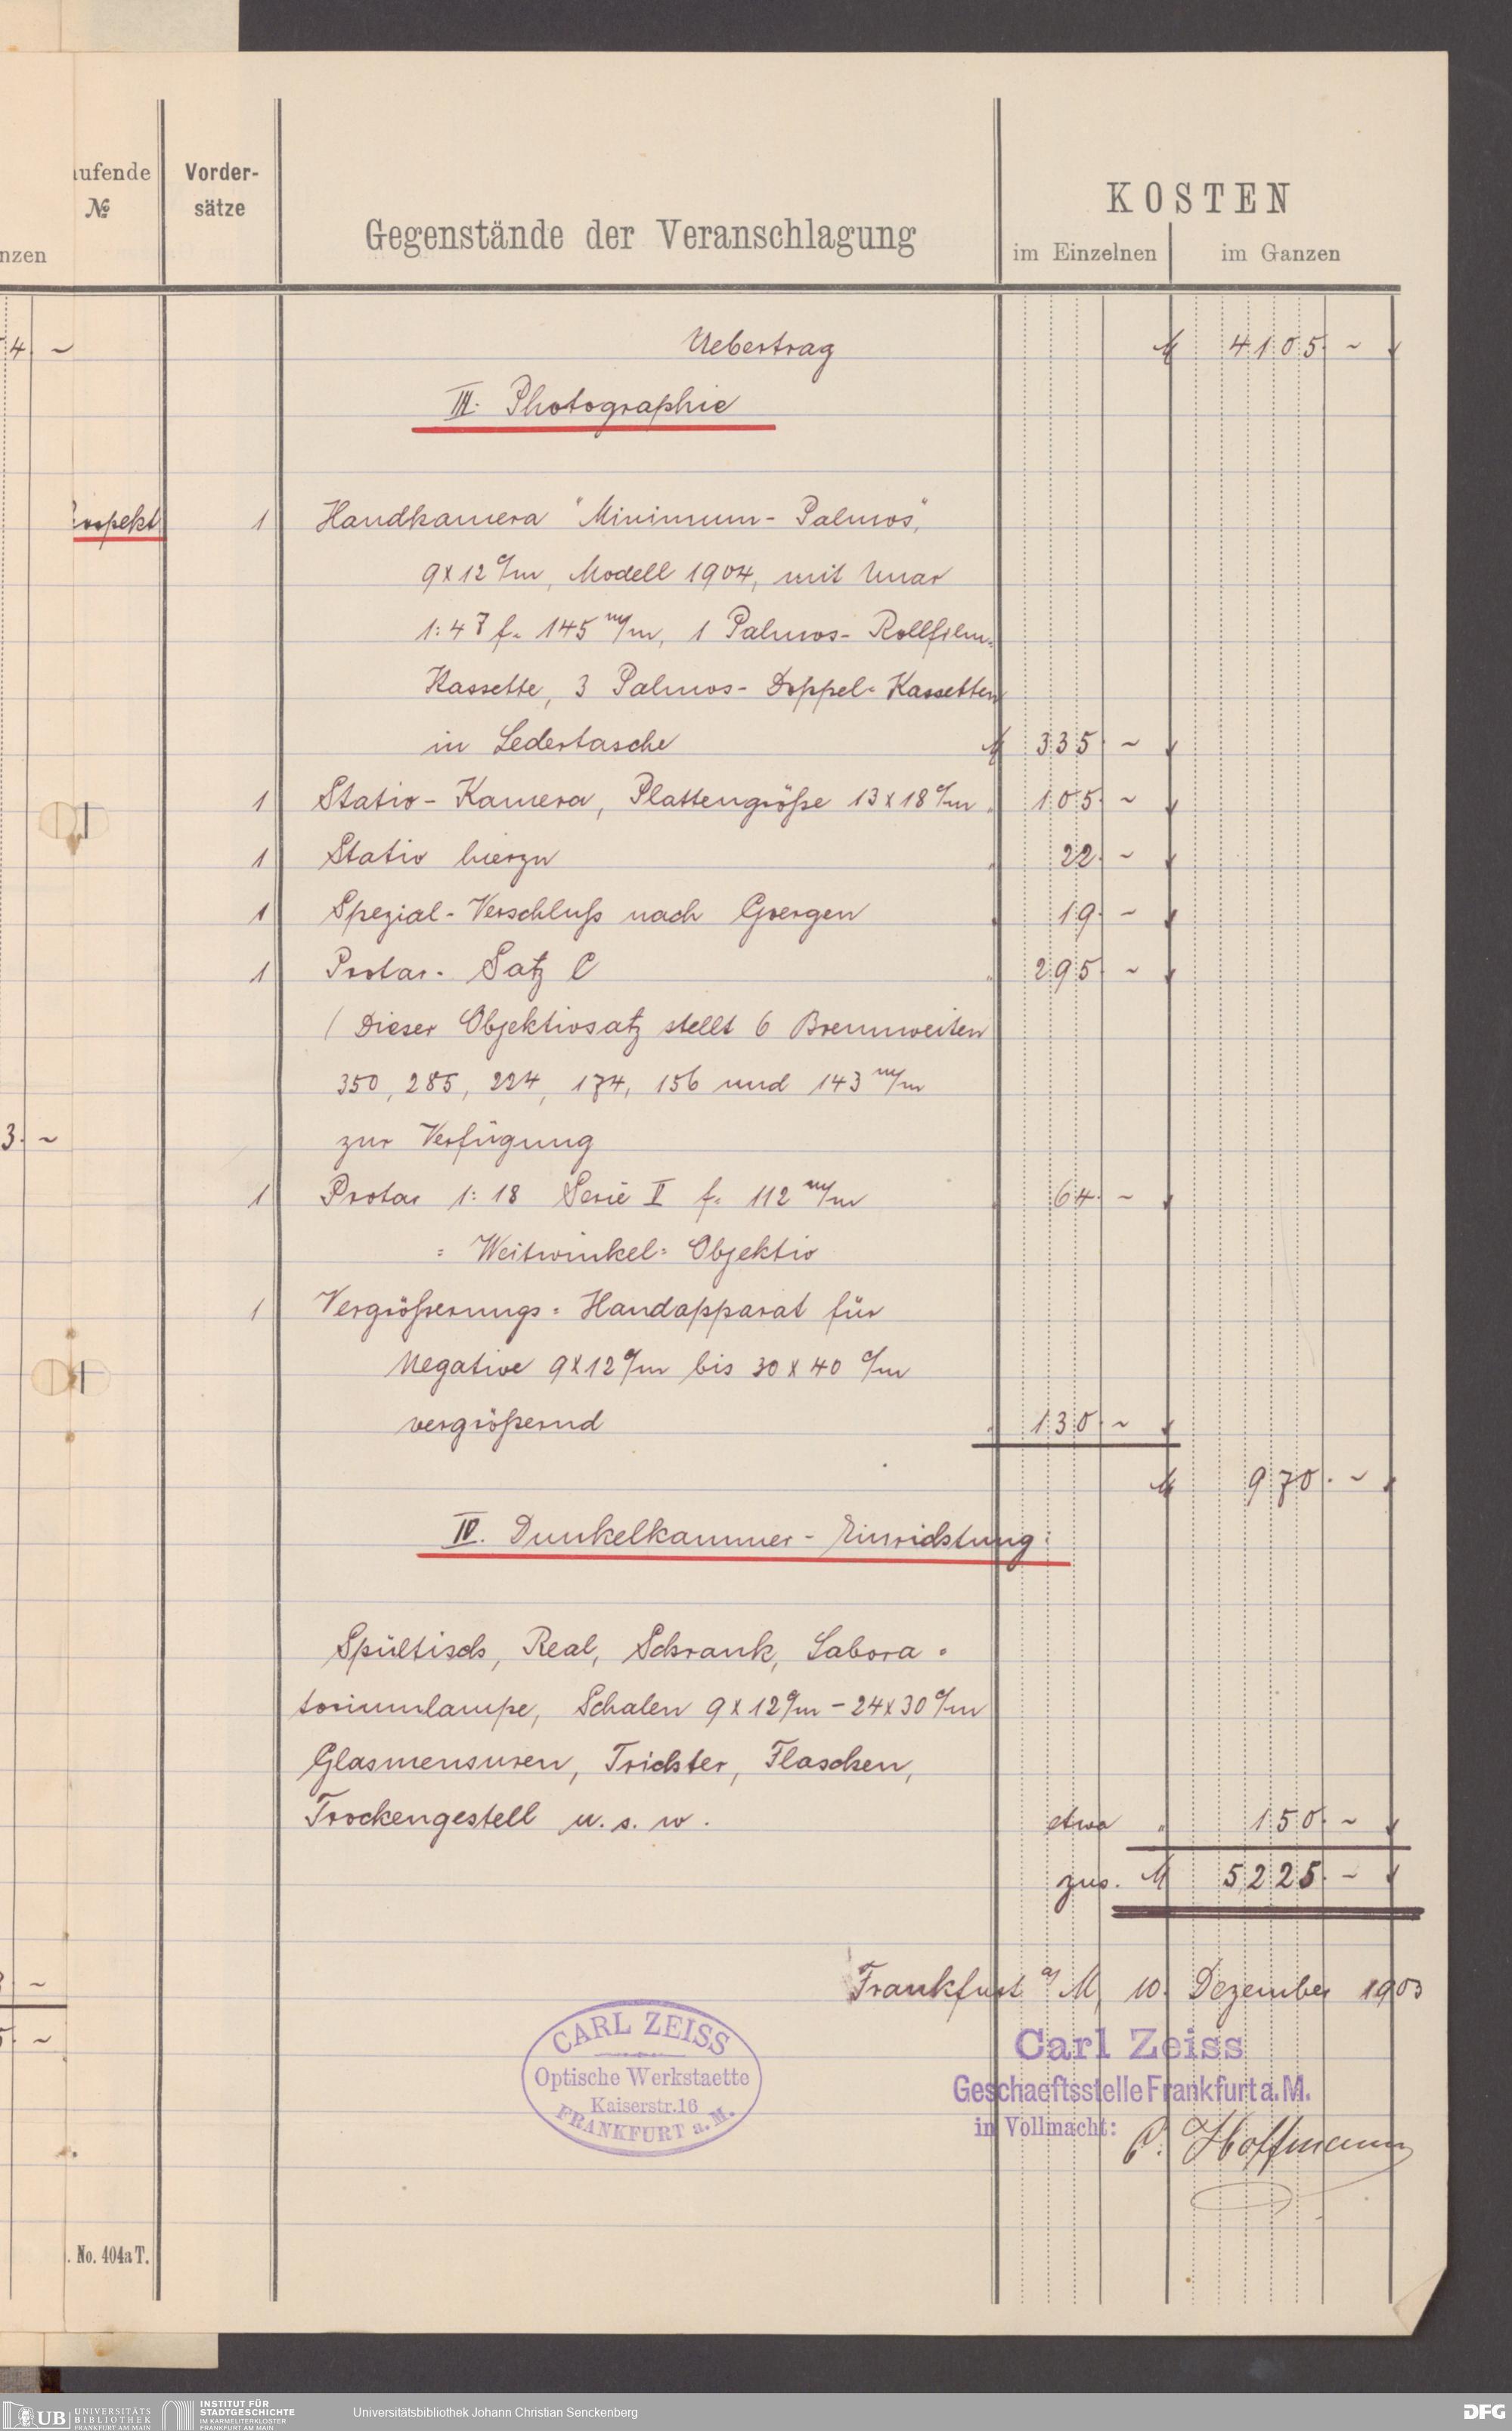 aufende
№
nzen
Vorder-
sätze
Gegenstände der Veranschlagung
KOSTEN
im Einzelnen
im Ganzen
4 ~
Uebertrag M 4105. ~
III. Photographie
1 Handkamera "Minimum-Palmos",
9x12 c/m, Modell 1904, mit Unar
1:47 f. 145 m/m, 1 Palmos-Rollfilm-
Kassette, 3 Palmos-Doppel-Kassetten
in Ledertasche M 335. ~
1 Stativ-Kamera, Plattengröße 13x18 c/m " 105. ~
1 Stativ hierzu " 22. ~
1 Spezial-Verschluß nach Goergen " 19. ~
1 Protar-Satz C " 295. ~
(Dieser Objektivsatz stellt 6 Brennweiten
350, 285, 224, 174, 156 und 143 m/m
zur Verfügung
3. ~
1 Protar 1:18 Serie V f. 112 m/m " 64. ~
= Weitwinkel=Objektiv
1 Vergrößerungs=Handapparat für
Negative 9x12 c/m bis 30x40 c/m
vergrößernd " 130. ~
M 970. ~
IV. Dunkelkammer-Einrichtung:
Spültisch, Real, Schrank, Labora=
toriumlampe, Schalen 9x12 c/m - 24x30 c/m
Glasmensuren, Trichter, Flaschen,
Trockengestell u. s. w. etwa " 150. ~
zus. M 5225. ~
Frankfurt a/M, 10. Dezember 1903
CARL ZEISS
Optische Werkstaette
Kaiserstr. 16
FRANKFURT a. M.
Carl Zeiss
Geschaeftsstelle Frankfurt a. M.
in Vollmacht: P. Hoffmann
. No. 404a T.
UB UNIVERSITÄTS
BIBLIOTHEK
FRANKFURT AM MAIN
INSTITUT FÜR
STADTGESCHICHTE
IM KARMELITERKLOSTER
FRANKFURT AM MAIN
Universitätsbibliothek Johann Christian Senckenberg
DFG